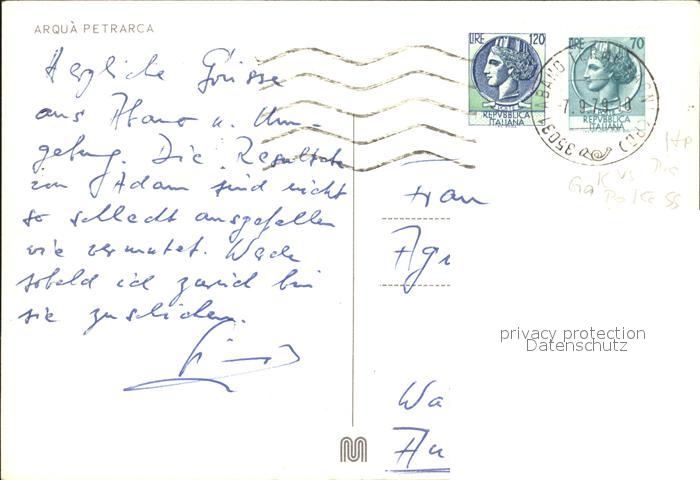 ARQUÀ PETRARCA
Herzliche Grüsse
aus Abano u. Um-
gebung. Die Resultate
von Adam sind nicht
so schlecht ausgefallen
wie vermutet. Werde
sobald ich zurück bin
sie zuschicken.
LIRE 120
POSTE
REPVBBLICA
ITALIANA
LIRE 70
REPVBBLICA
ITALIANA
35031 ABANO TERME
7.9.79
(PD)
Frau
Agn
Wa
privacy protection
Datenschutz